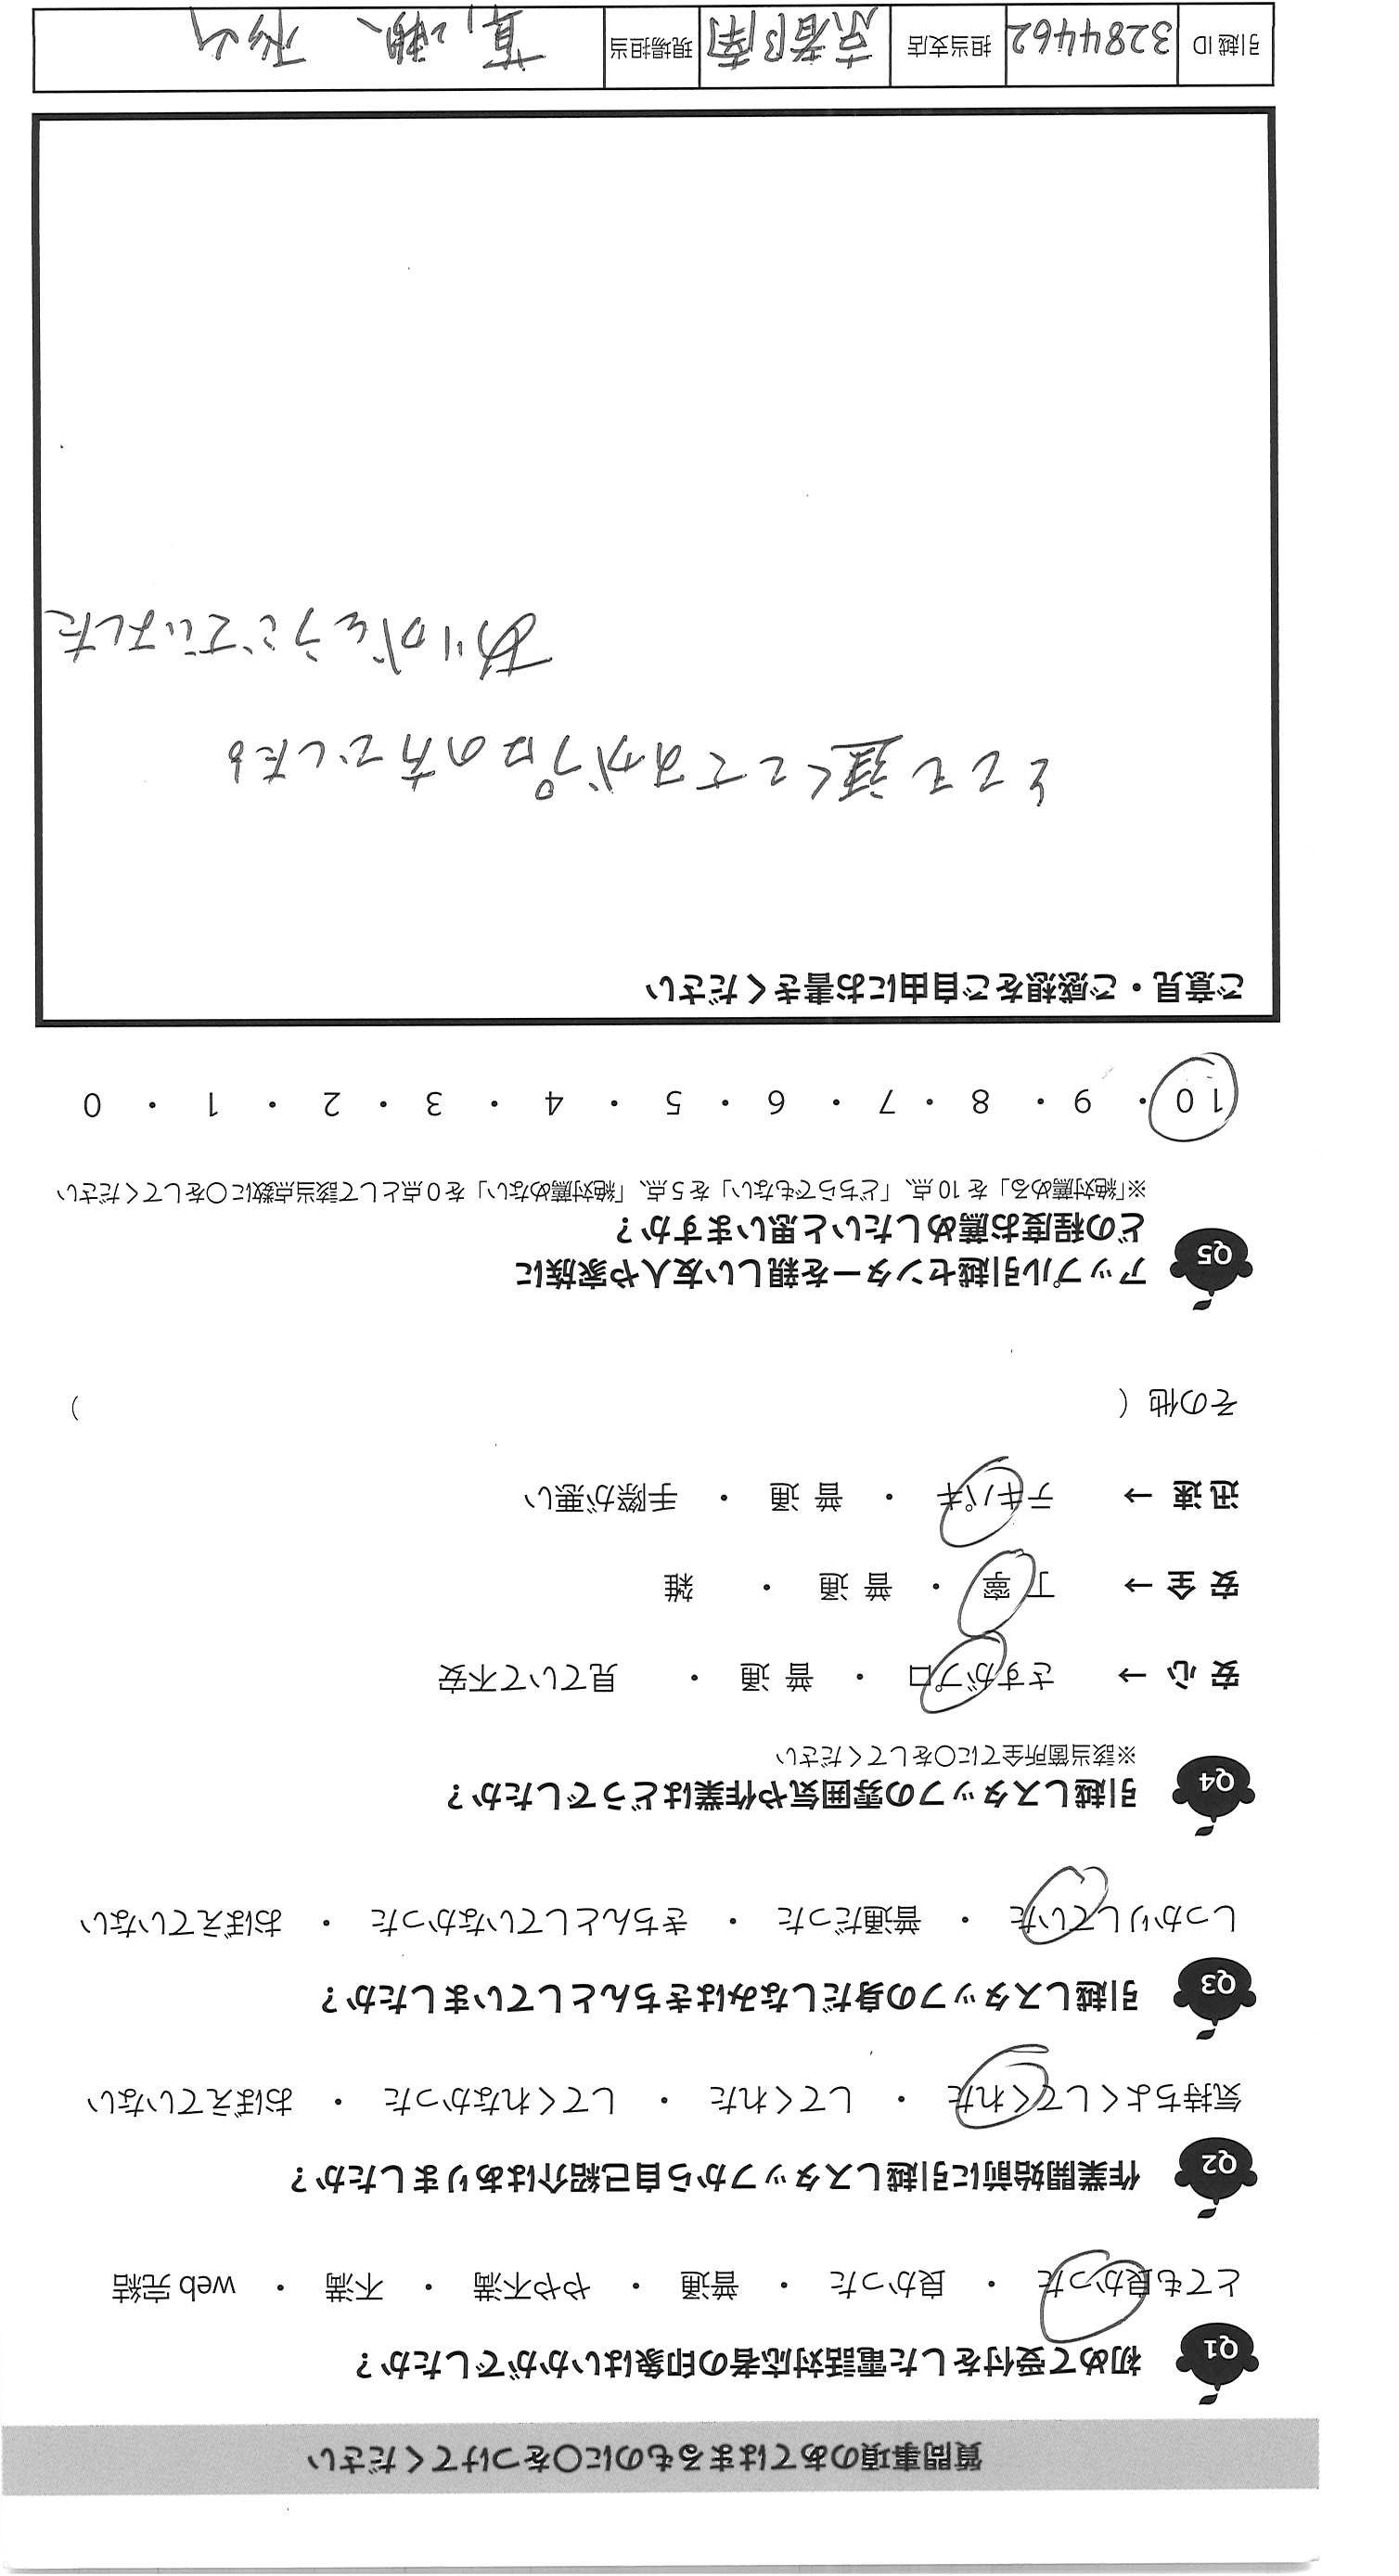 質問事項のあてはまるものに〇をつけてください
Q1 初めて受付をした電話対応者の印象はいかがでしたか？
とても良かった ・ 良かった ・ 普通 ・ やや不満 ・ 不満 ・ web 完結
Q2 作業開始前に引越しスタッフから自己紹介はありましたか？
気持ちよくしてくれた ・ してくれた ・ してくれなかった ・ おぼえていない
Q3 引越しスタッフの身だしなみはきちんとしていましたか？
しっかりしていた ・ 普通だった ・ きちんとしていなかった ・ おぼえていない
Q4 引越しスタッフの雰囲気や作業はどうでしたか？
※該当箇所全てに〇をしてください
安心 → さすがプロ ・ 普通 ・ 見ていて不安
安全 → 丁寧 ・ 普通 ・ 雑
迅速 → テキパキ ・ 普通 ・ 手際が悪い
その他（ ）
Q5 アップル引越センターを親しい友人や家族に
どの程度お薦めしたいと思いますか？
※「絶対薦める」を 10 点、「どちらでもない」を 5 点、「絶対薦めない」を 0 点として該当点数に〇をしてください
10 ・ 9 ・ 8 ・ 7 ・ 6 ・ 5 ・ 4 ・ 3 ・ 2 ・ 1 ・ 0
ご意見・ご感想をご自由にお書きください
とても速くてさすがプロの方でした。
ありがとうございました
引越 ID 3284462 担当支店 京都南 現場担当